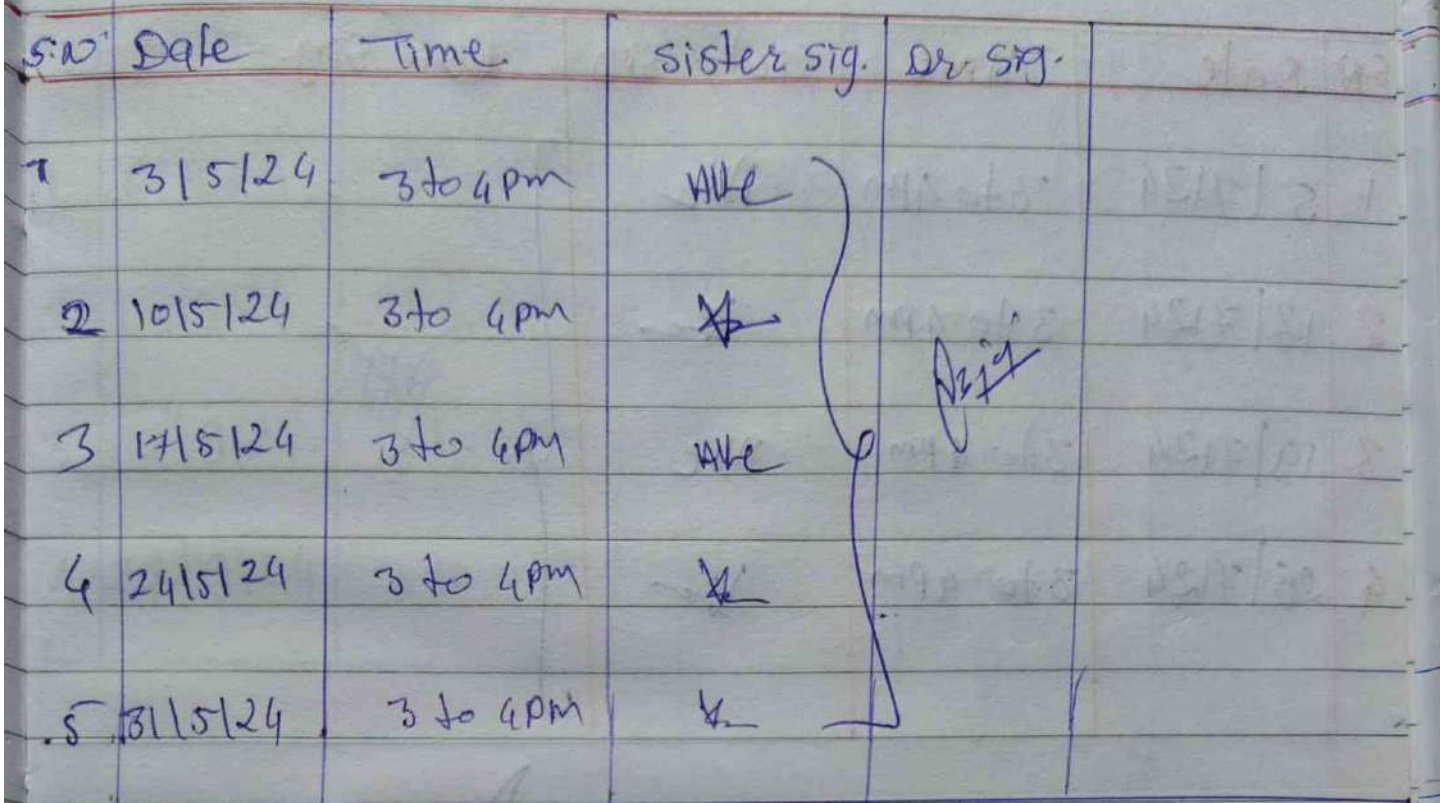 S.N Date Time Sister sig. Dr. Sig.
1 3/5/24 3 to 4 pm
2 10/5/24 3 to 4 pm
3 17/5/24 3 to 4 pm
4 24/5/24 3 to 4 pm
5 31/5/24 3 to 4 pm